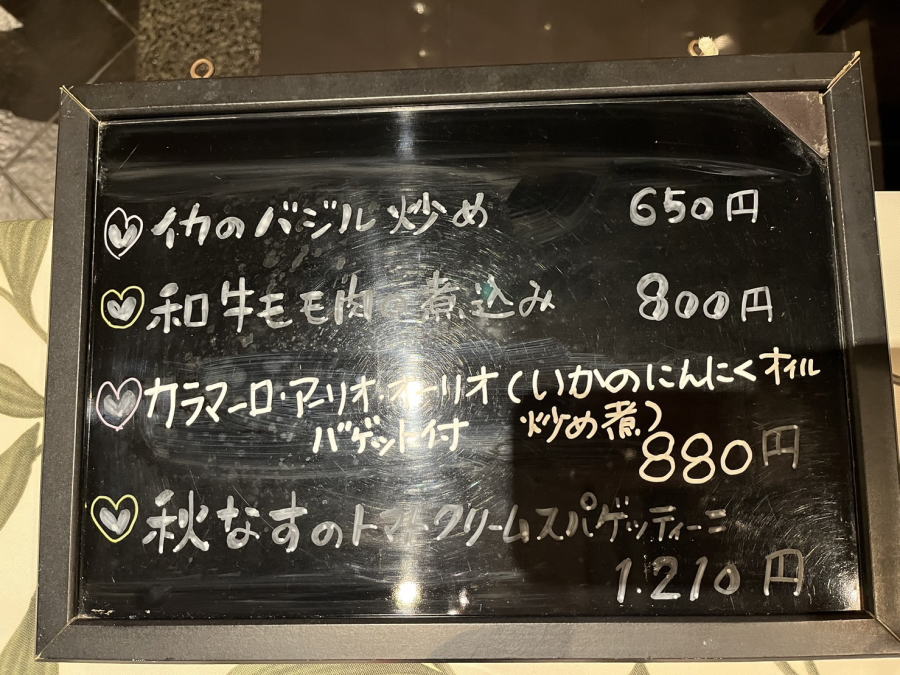 イカのバジル炒め 650円
和牛モモ肉の煮込み 800円
カラマーロ・アーリオ・オーリオ(いかのにんにくオイル
バゲット付 炒め煮)
880円
秋なすのトマトクリームスパゲッティーニ
1.210円